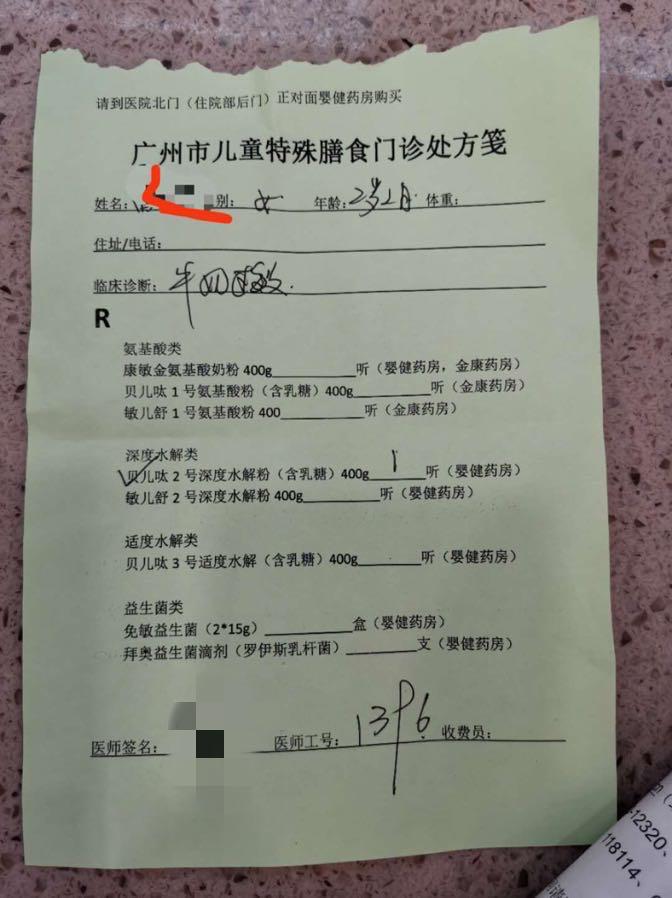 请到医院北门（住院部后门）正对面婴健药房购买
广州市儿童特殊膳食门诊处方笺
姓名： 别：女 年龄：2岁2月 体重：
住址/电话：
临床诊断：牛奶
R
氨基酸类
康敏金氨基酸奶粉 400g________听（婴健药房，金康药房）
贝儿呔 1 号氨基酸粉（含乳糖）400g________听（金康药房）
敏儿舒 1 号氨基酸粉 400________听（金康药房）
深度水解类
✓贝儿呔 2 号深度水解粉（含乳糖）400g 1 听（婴健药房）
敏儿舒 2 号深度水解粉 400g________听（婴健药房）
适度水解类
贝儿呔 3 号适度水解（含乳糖）400g________听（婴健药房）
益生菌类
免敏益生菌（2*15g）________盒（婴健药房）
拜奥益生菌滴剂（罗伊斯乳杆菌）________支（婴健药房）
医师签名： 医师工号：1396 收费员：
-12320、
118114、